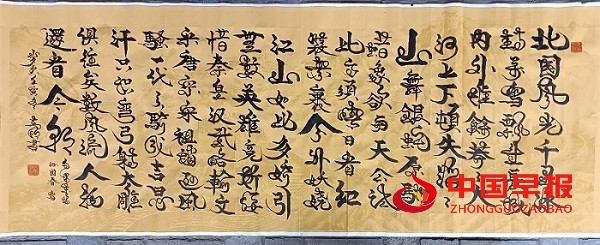 北国风光千里冰
封万里雪飘望长城
内外惟餘莽莽大
河上下顿失滔滔
山舞银蛇原驰
蜡象欲与天公试
比高须晴日看红
装素裹分外妖娆
江山如此多娇引
無數英雄竞折腰
惜秦皇汉武略输文
采唐宗宋祖稍逊风
骚一代天骄成吉思
汗只识弯弓射大雕
俱往矣数风流人物
还看今朝
中国早报
ZHONGGUOZAOBAO